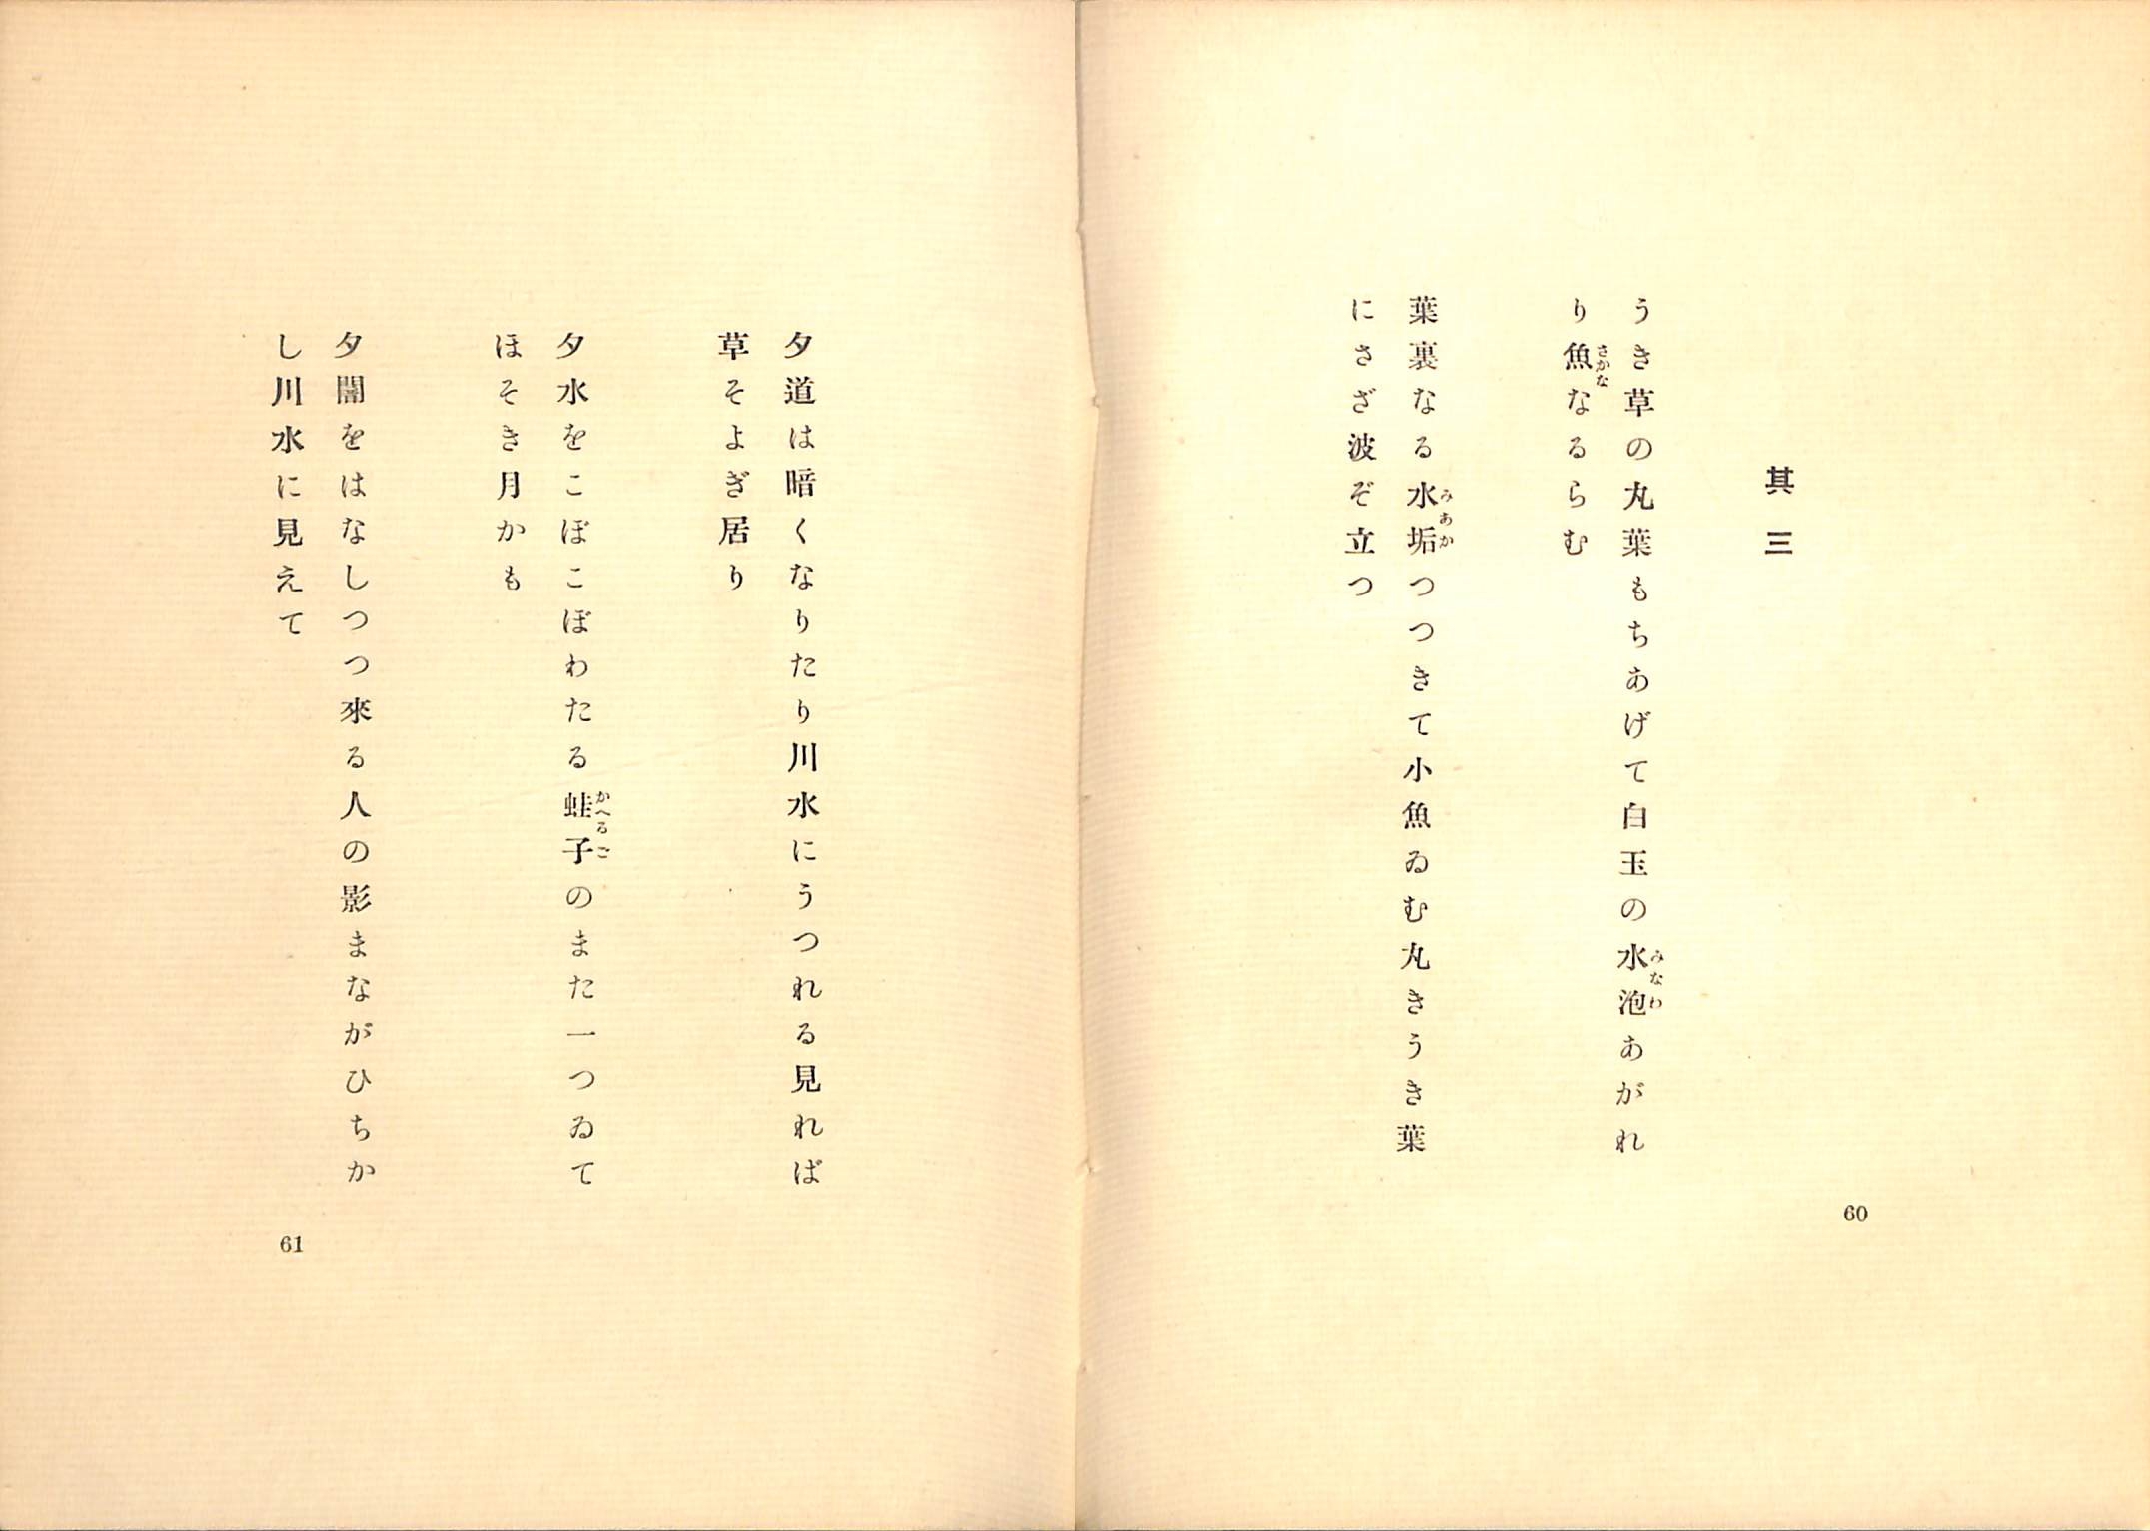 其三
うき草の丸葉もちあげて白玉の水泡あがれ
みなわ
り魚なるらむ
さかな
葉裏なる水垢つつきて小魚ゐむ丸きうき葉
みあか
にさざ波ぞ立つ
60
夕道は暗くなりたり川水にうつれる見れば
草そよぎ居り
夕水をこぼこぼわたる蛙子のまた一つゐて
かへるご
ほそき月かも
夕闇をはなしつつ來る人の影まながひちか
し川水に見えて
61